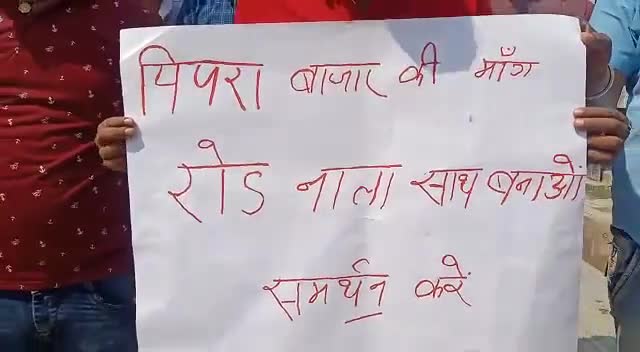 पिपरा बाजार की माँग
रोड नाला साथ बनाओं
समर्थन करें